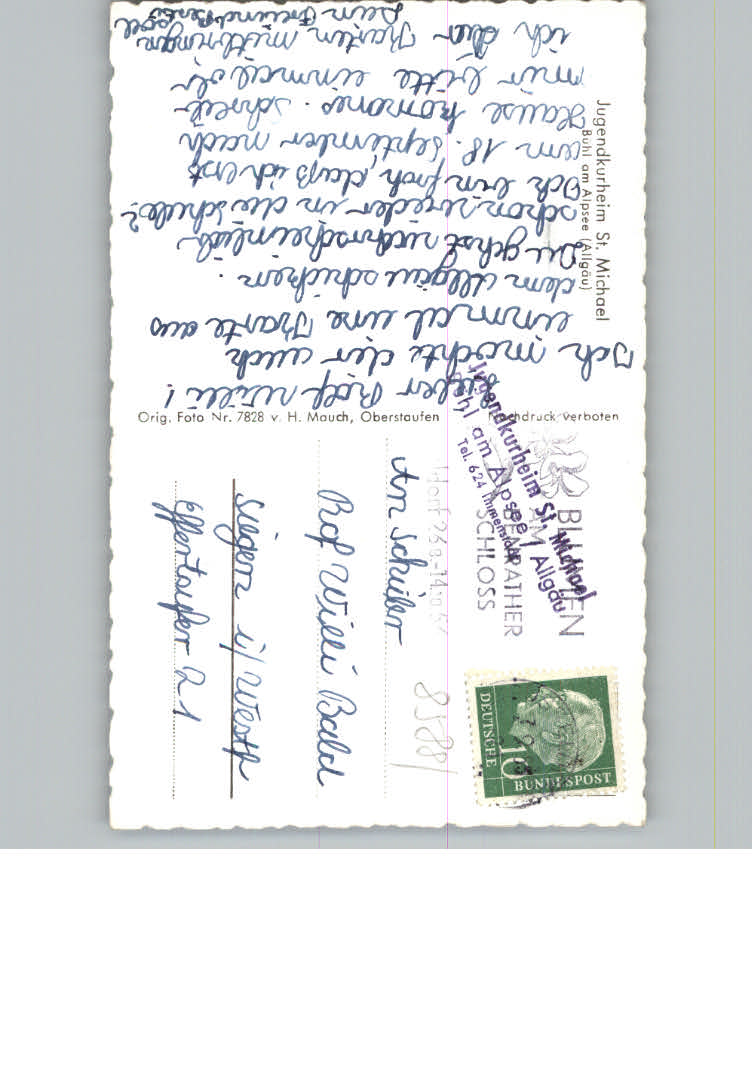 Jugendkurheim St. Michael
Bühl am Alpsee (Allgäu)
Lieber Rolf-Willi!
Ich möchte dir auch
einmal eine Karte aus
dem Allgäu schicken.
Du gehst wahrscheinlich
schon wieder in die Schule?
Ich bin froh, daß ich erst
am 18. September nach
Hause komme. Schreib
mir bitte einmal ob
ich dir Karten mitbringen
soll
Dein Freund
Orig. Foto Nr. 7828 v. H. Mauch, Oberstaufen
Nachdruck verboten
Jugendkurheim St. Michael
Bühl am Alpsee / Allgäu
Tel. 624 Immenstadt
BLUMEN
AM
BENRATHER
SCHLOSS
DEUTSCHE
10
BUNDESPOST
8588/
An Schüler
Rolf Willi Bald
Siegen i/ Westf
Effertsufer 21